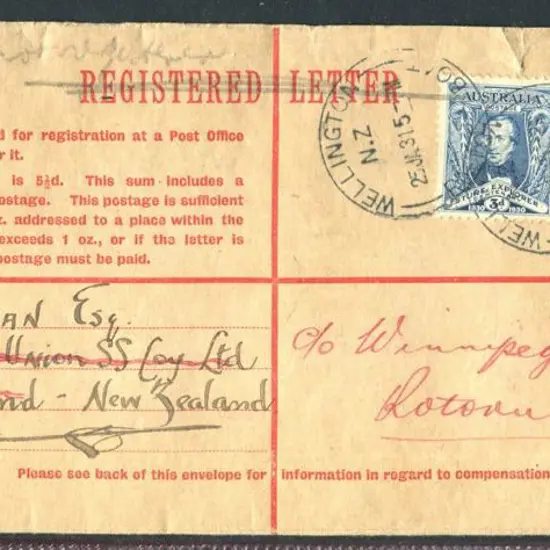 REGISTERED LETTER
d for registration at a Post Office
r it.
is 5½d. This sum includes a
ostage. This postage is sufficient
z. addressed to a place within the
exceeds 1 oz., or if the letter is
postage must be paid.
WELLINGTON
N.Z.
AUSTRALIA
STURT EXPLORER
1830 1930
3d
AN Esq.
Union SS Coy Ltd
nd - New Zealand
c/o Winnipeg
Rotoru
Please see back of this envelope for information in regard to compensation